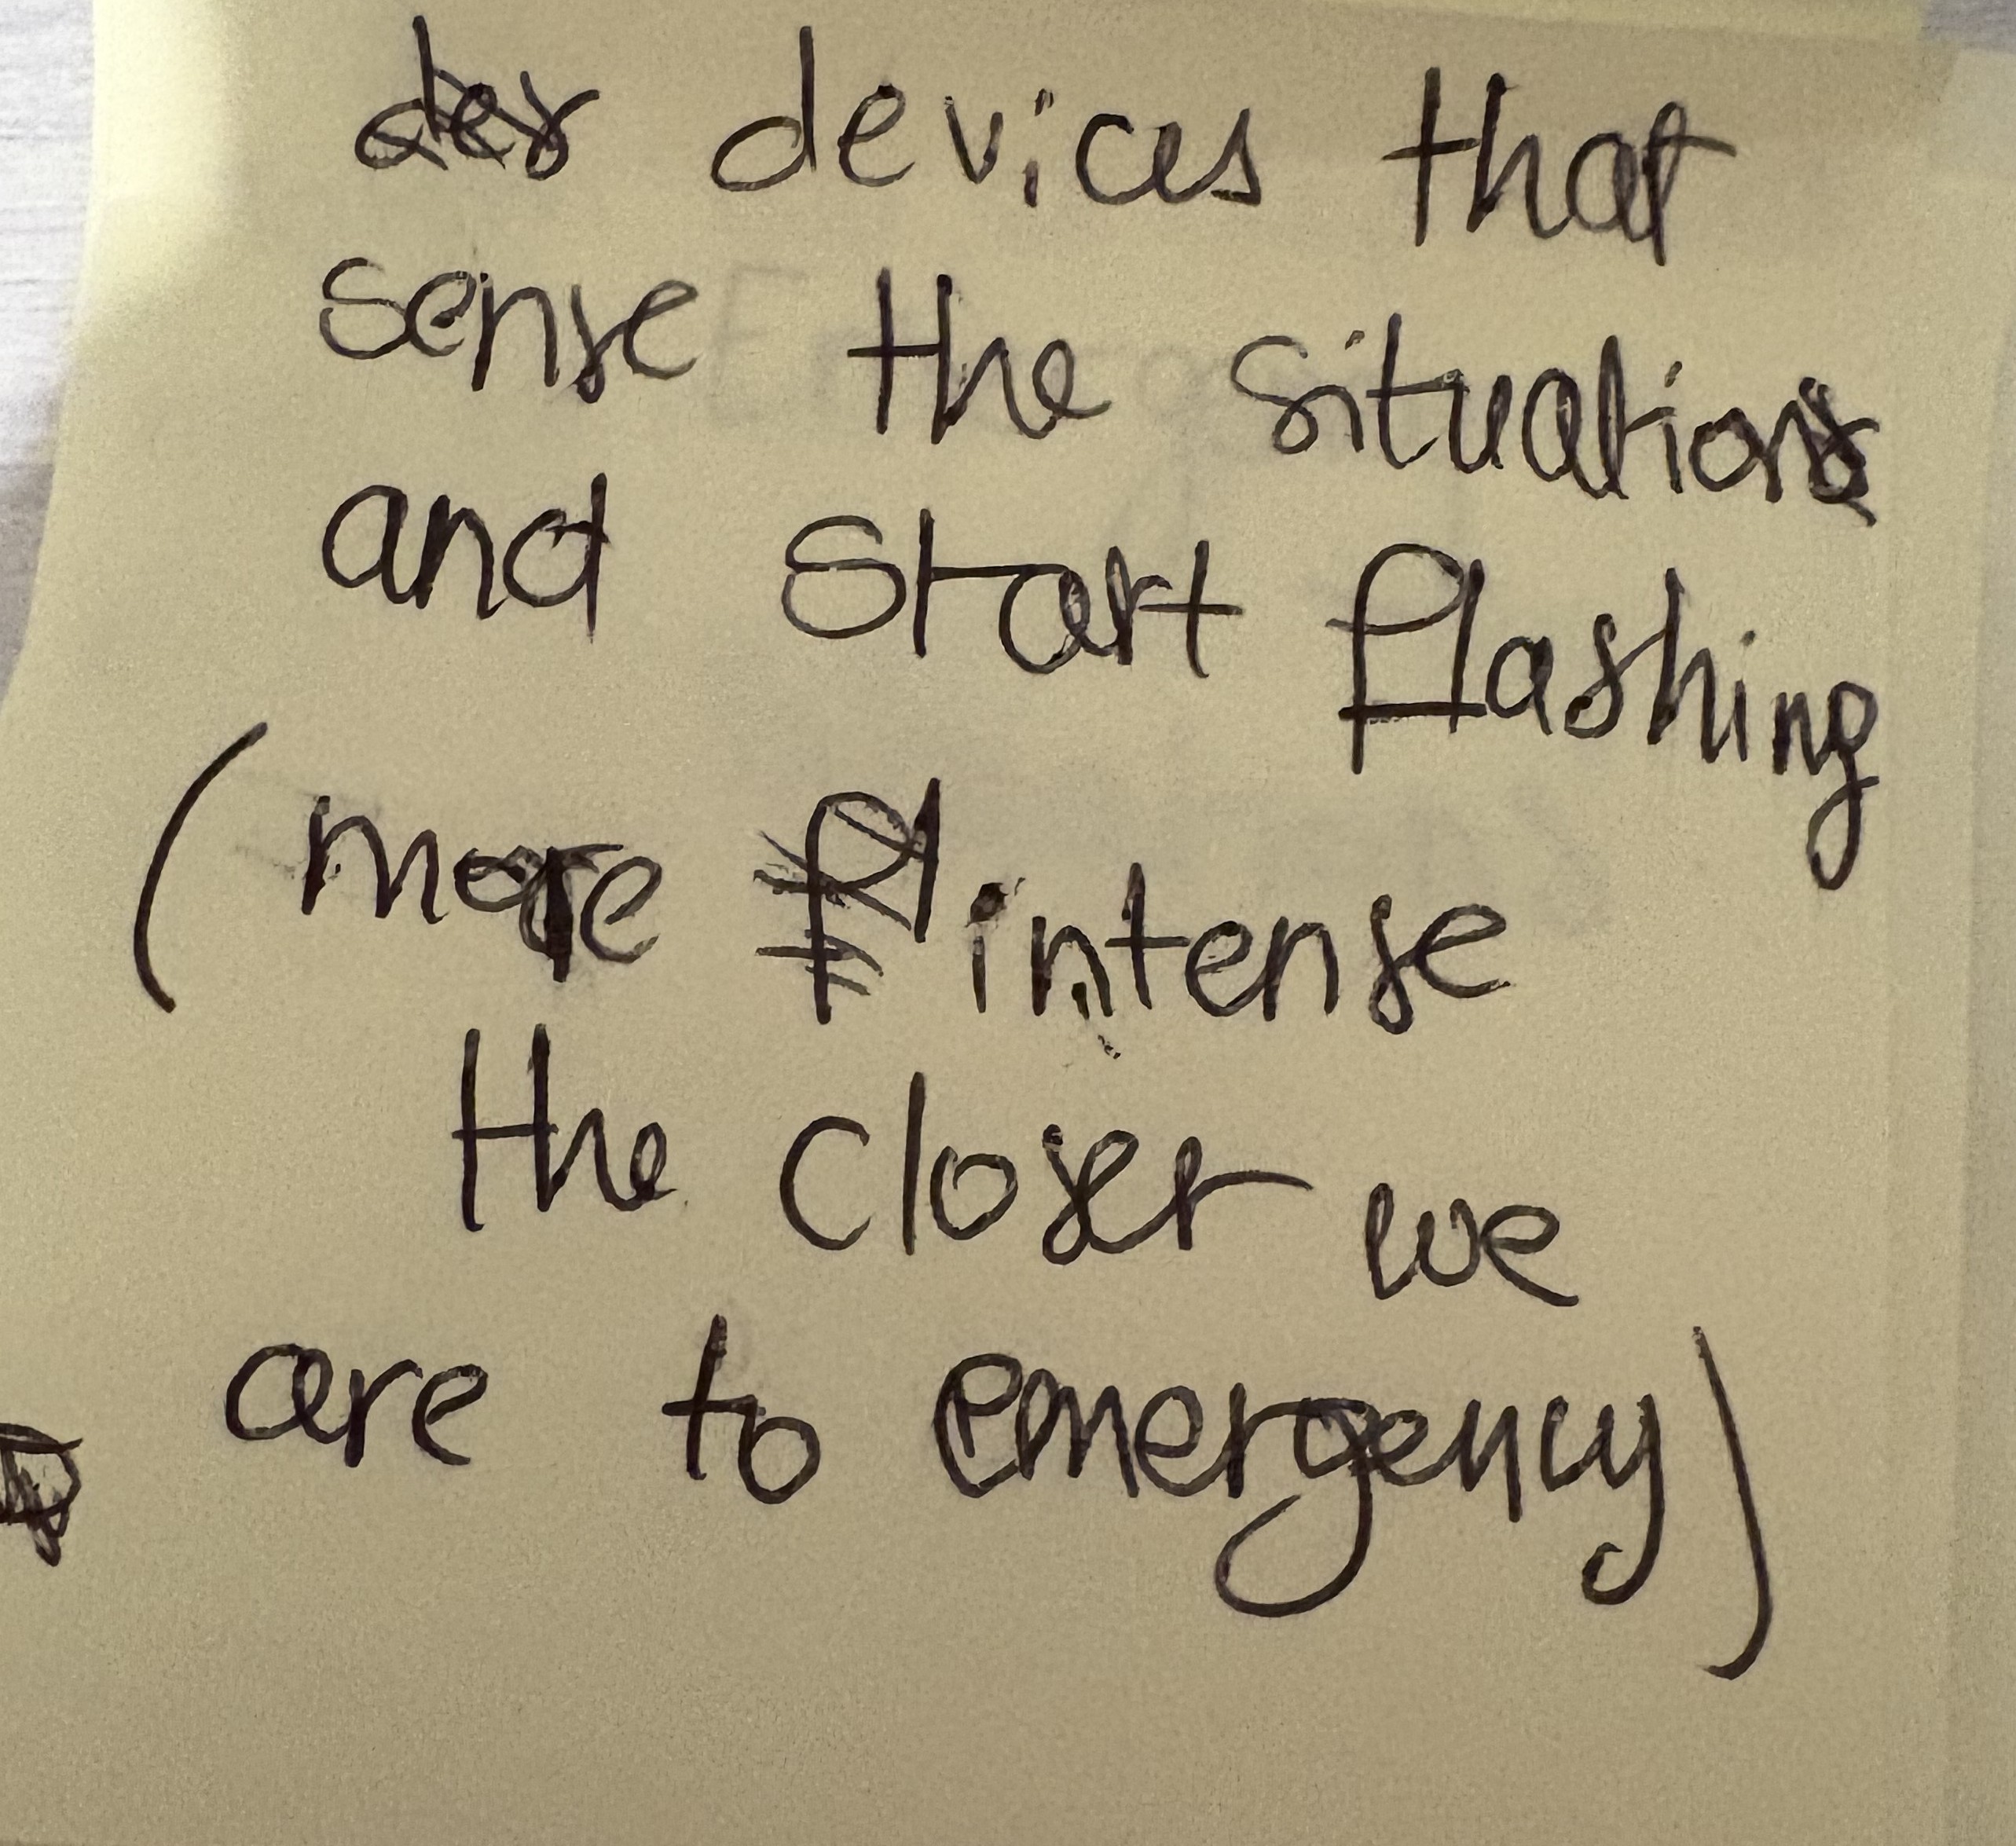 devices that
sense the situation
and start flashing
(more intense
the closer we
are to emergency)